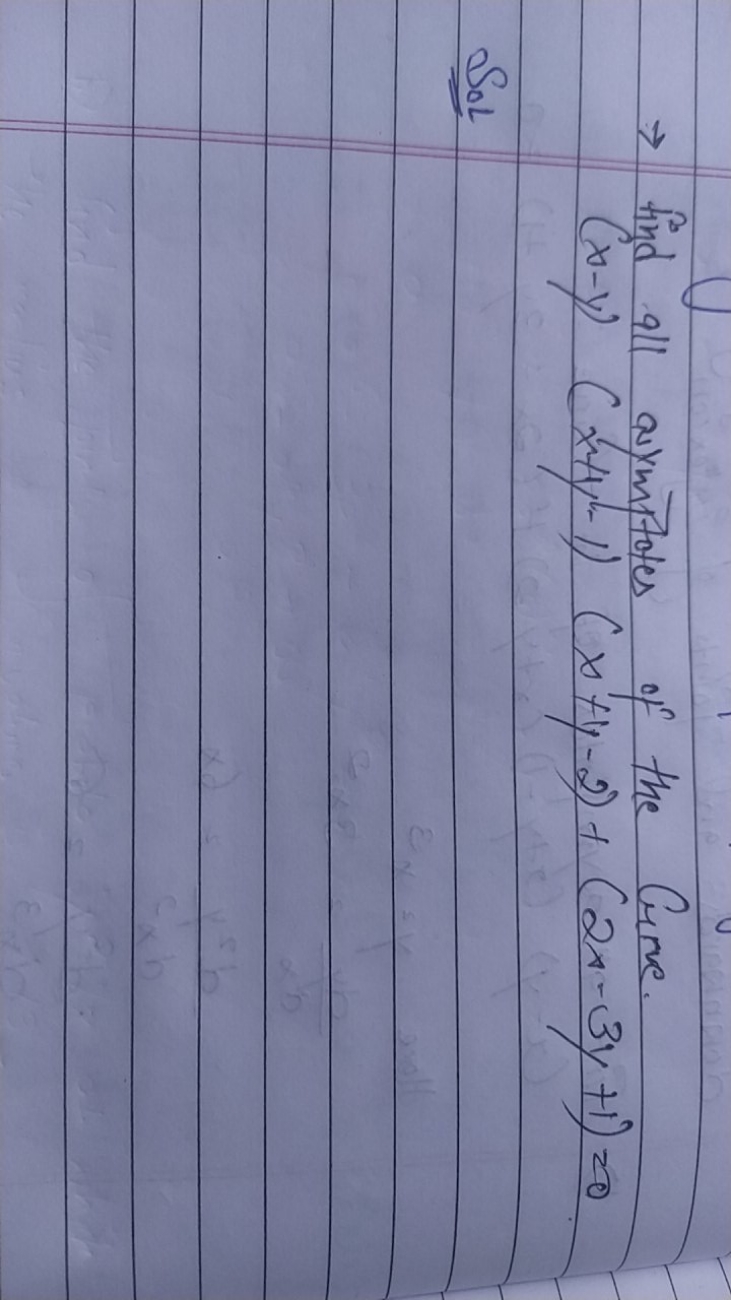 → find all asymptotes of the Curve.
(x-y) (x²+y²-1) (x+y-2) + (2x-3y+1)=0
Sol